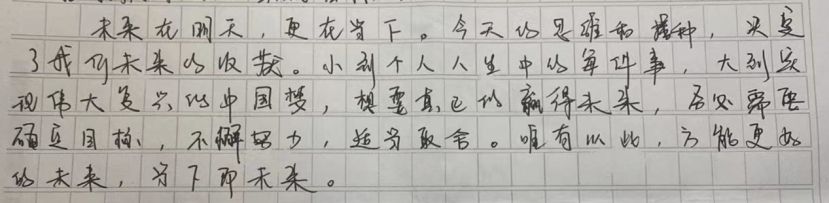 未来在明天，更在当下。今天的思维和播种，决定
了我们未来的收获。小到个人人生中的每件事，大到实
现伟大复兴的中国梦，想要真正的赢得未来，否必需要
确定目标，不懈努力，适当取舍。唯有以此，方能更好
的未来，当下即未来。